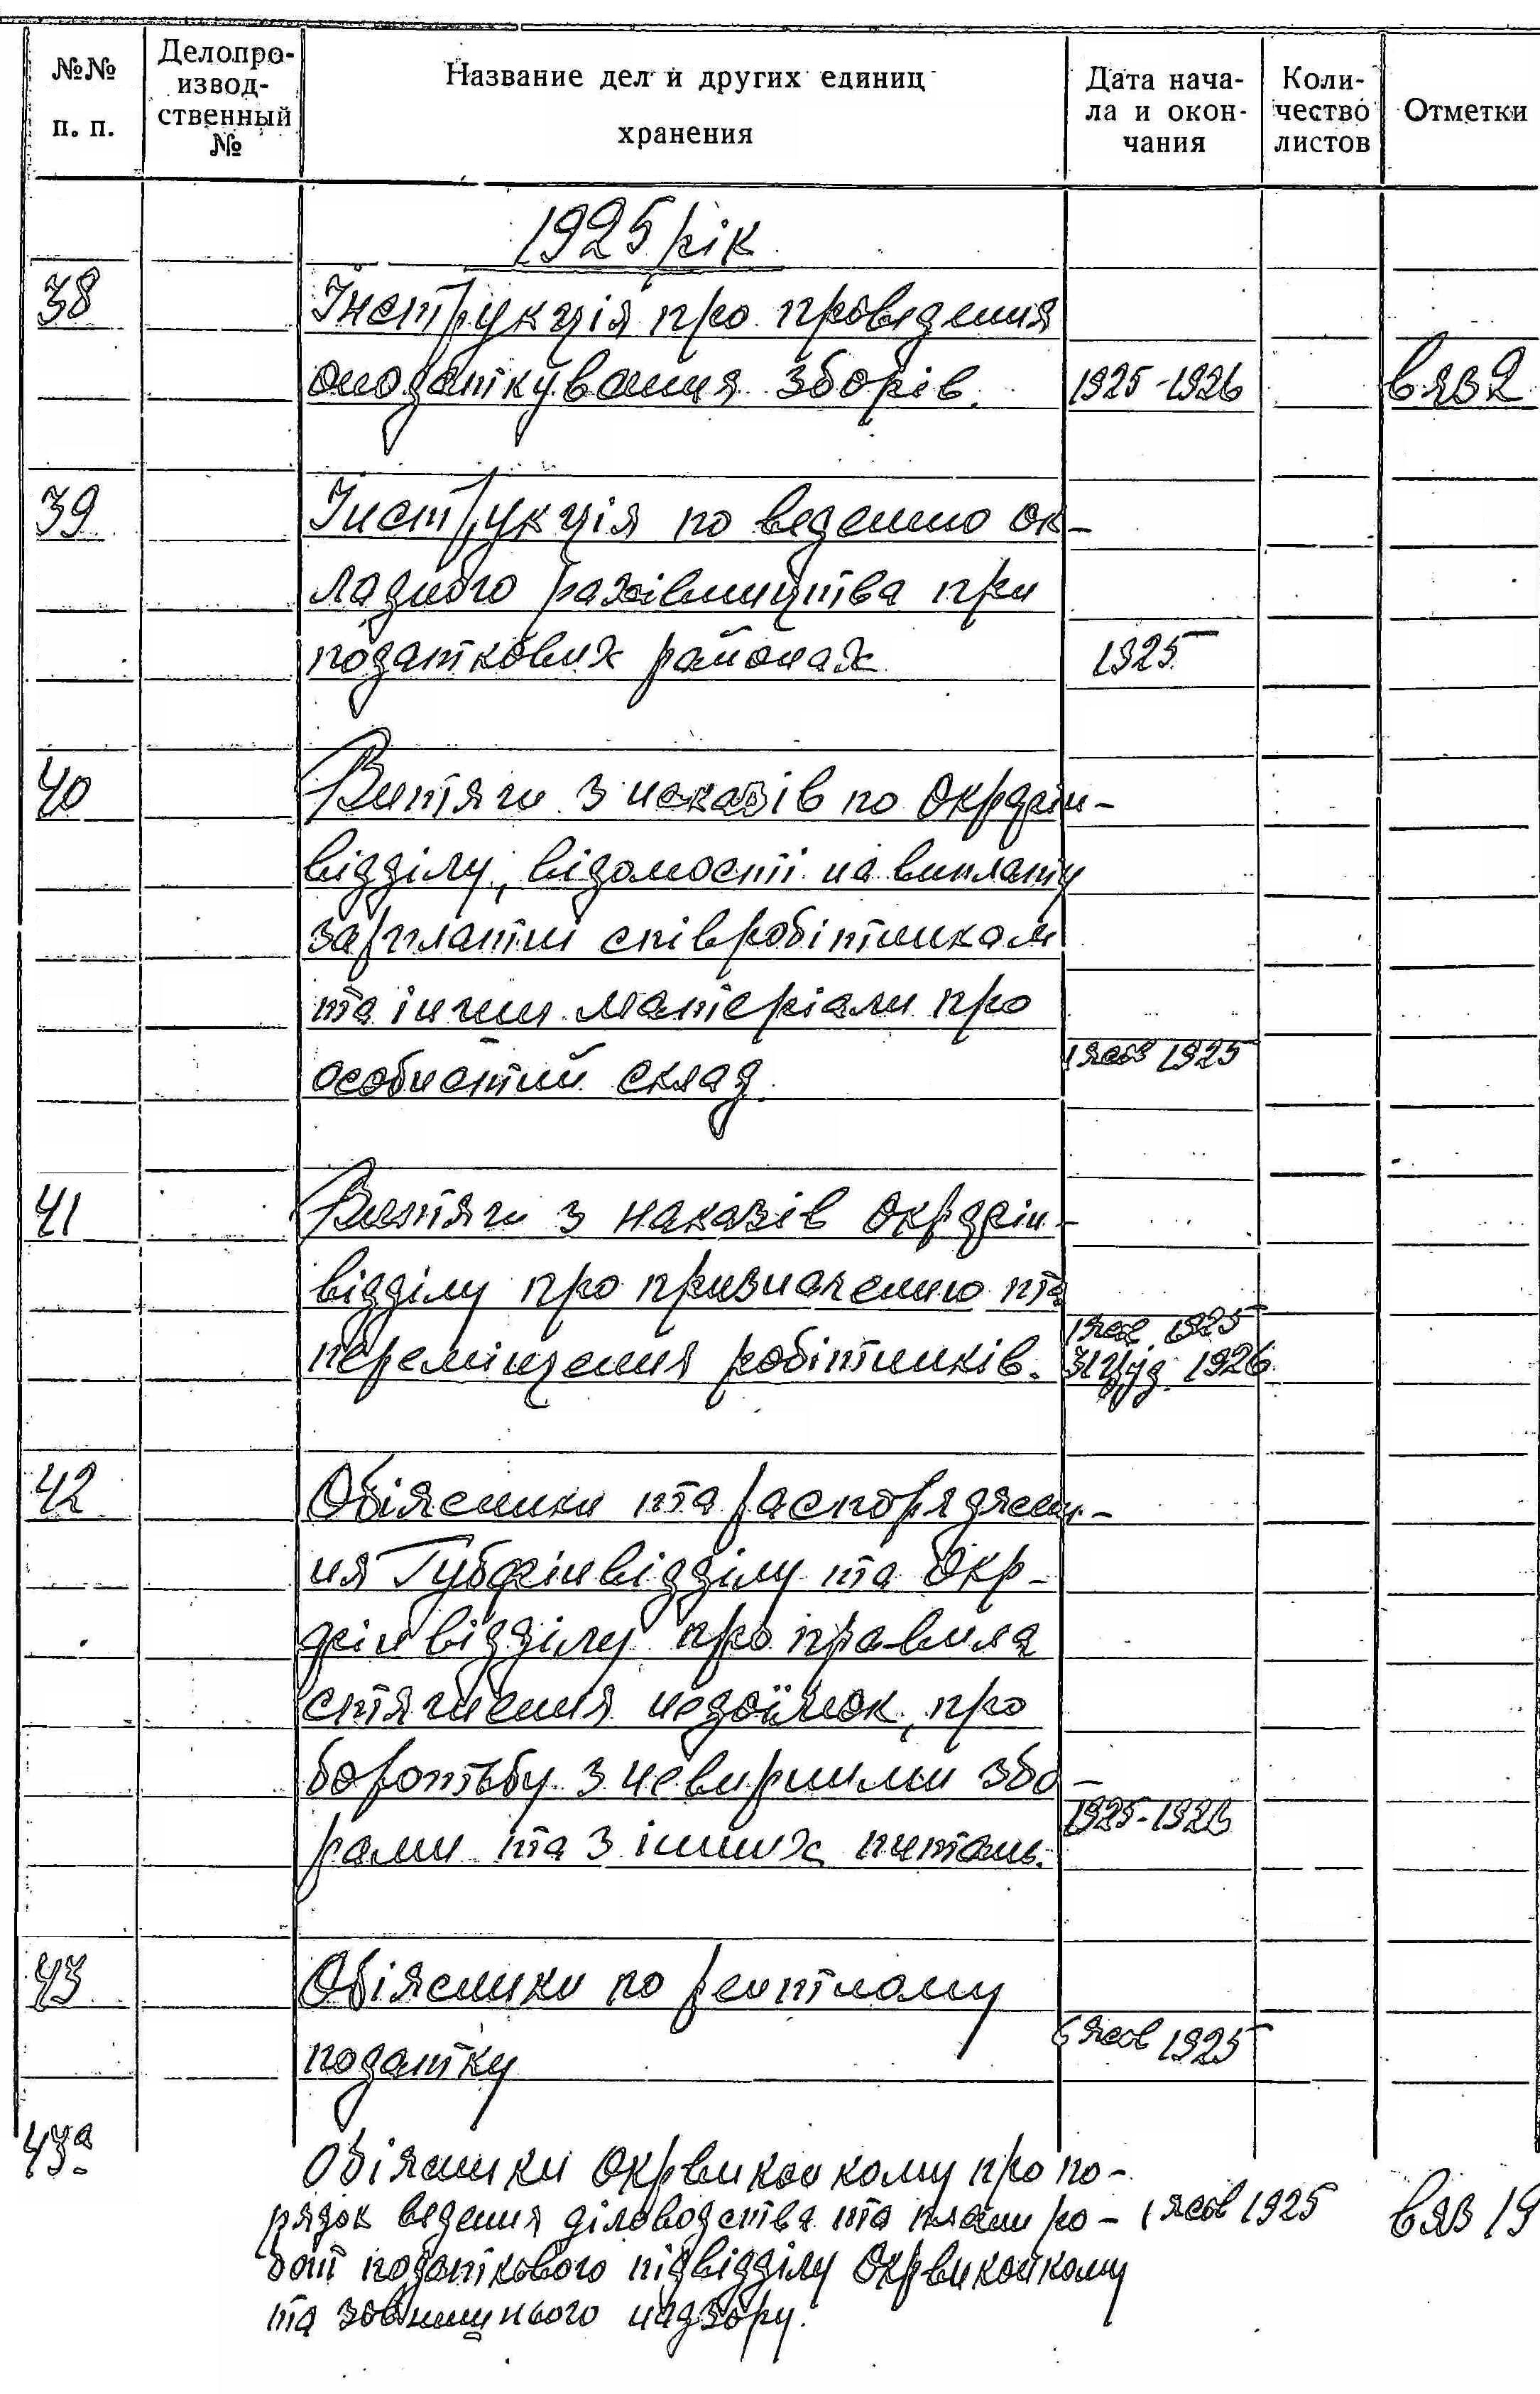 №№ п. п.
Делопро-
извод-
ственный
№
Название дел и других единиц
хранения
Дата нача-
ла и окон-
чания
Коли-
чество
листов
Отметки
1925 рік
38
Інструкція про проведення
оподаткування зборів. 1925-1926 вяз 2
39
Інструкція по веденню ок-
ладного рахівництва при
податкових районах 1925
40
Витяги з наказів по Окрфін-
відділу, відомості на виплату
зарплатні співробітникам
та інчи матеріали про
особистий склад. 1 жов 1925
41
Витяги з наказів Окрфін-
відділу про призначенню та
переміщення робітників. 1 жов 1925
31 груд. 1926
42
Обіжники та распоряджен-
ня Губфінвідділу та Окр-
фінвідділу про правила
стягнення недоїмок, про
боротьбу з невирними збо-
рами та з інших питань. 1925-1926
43
Обіжники по рентному
податку 6 жов 1925
43а
Обіжники Окрвиконкому про по-
рядок ведення діловодства та плани ро- 1 жов 1925 вяз 19
бот податкового підвідділу Окрвиконкому
та зовнишнього надзору.